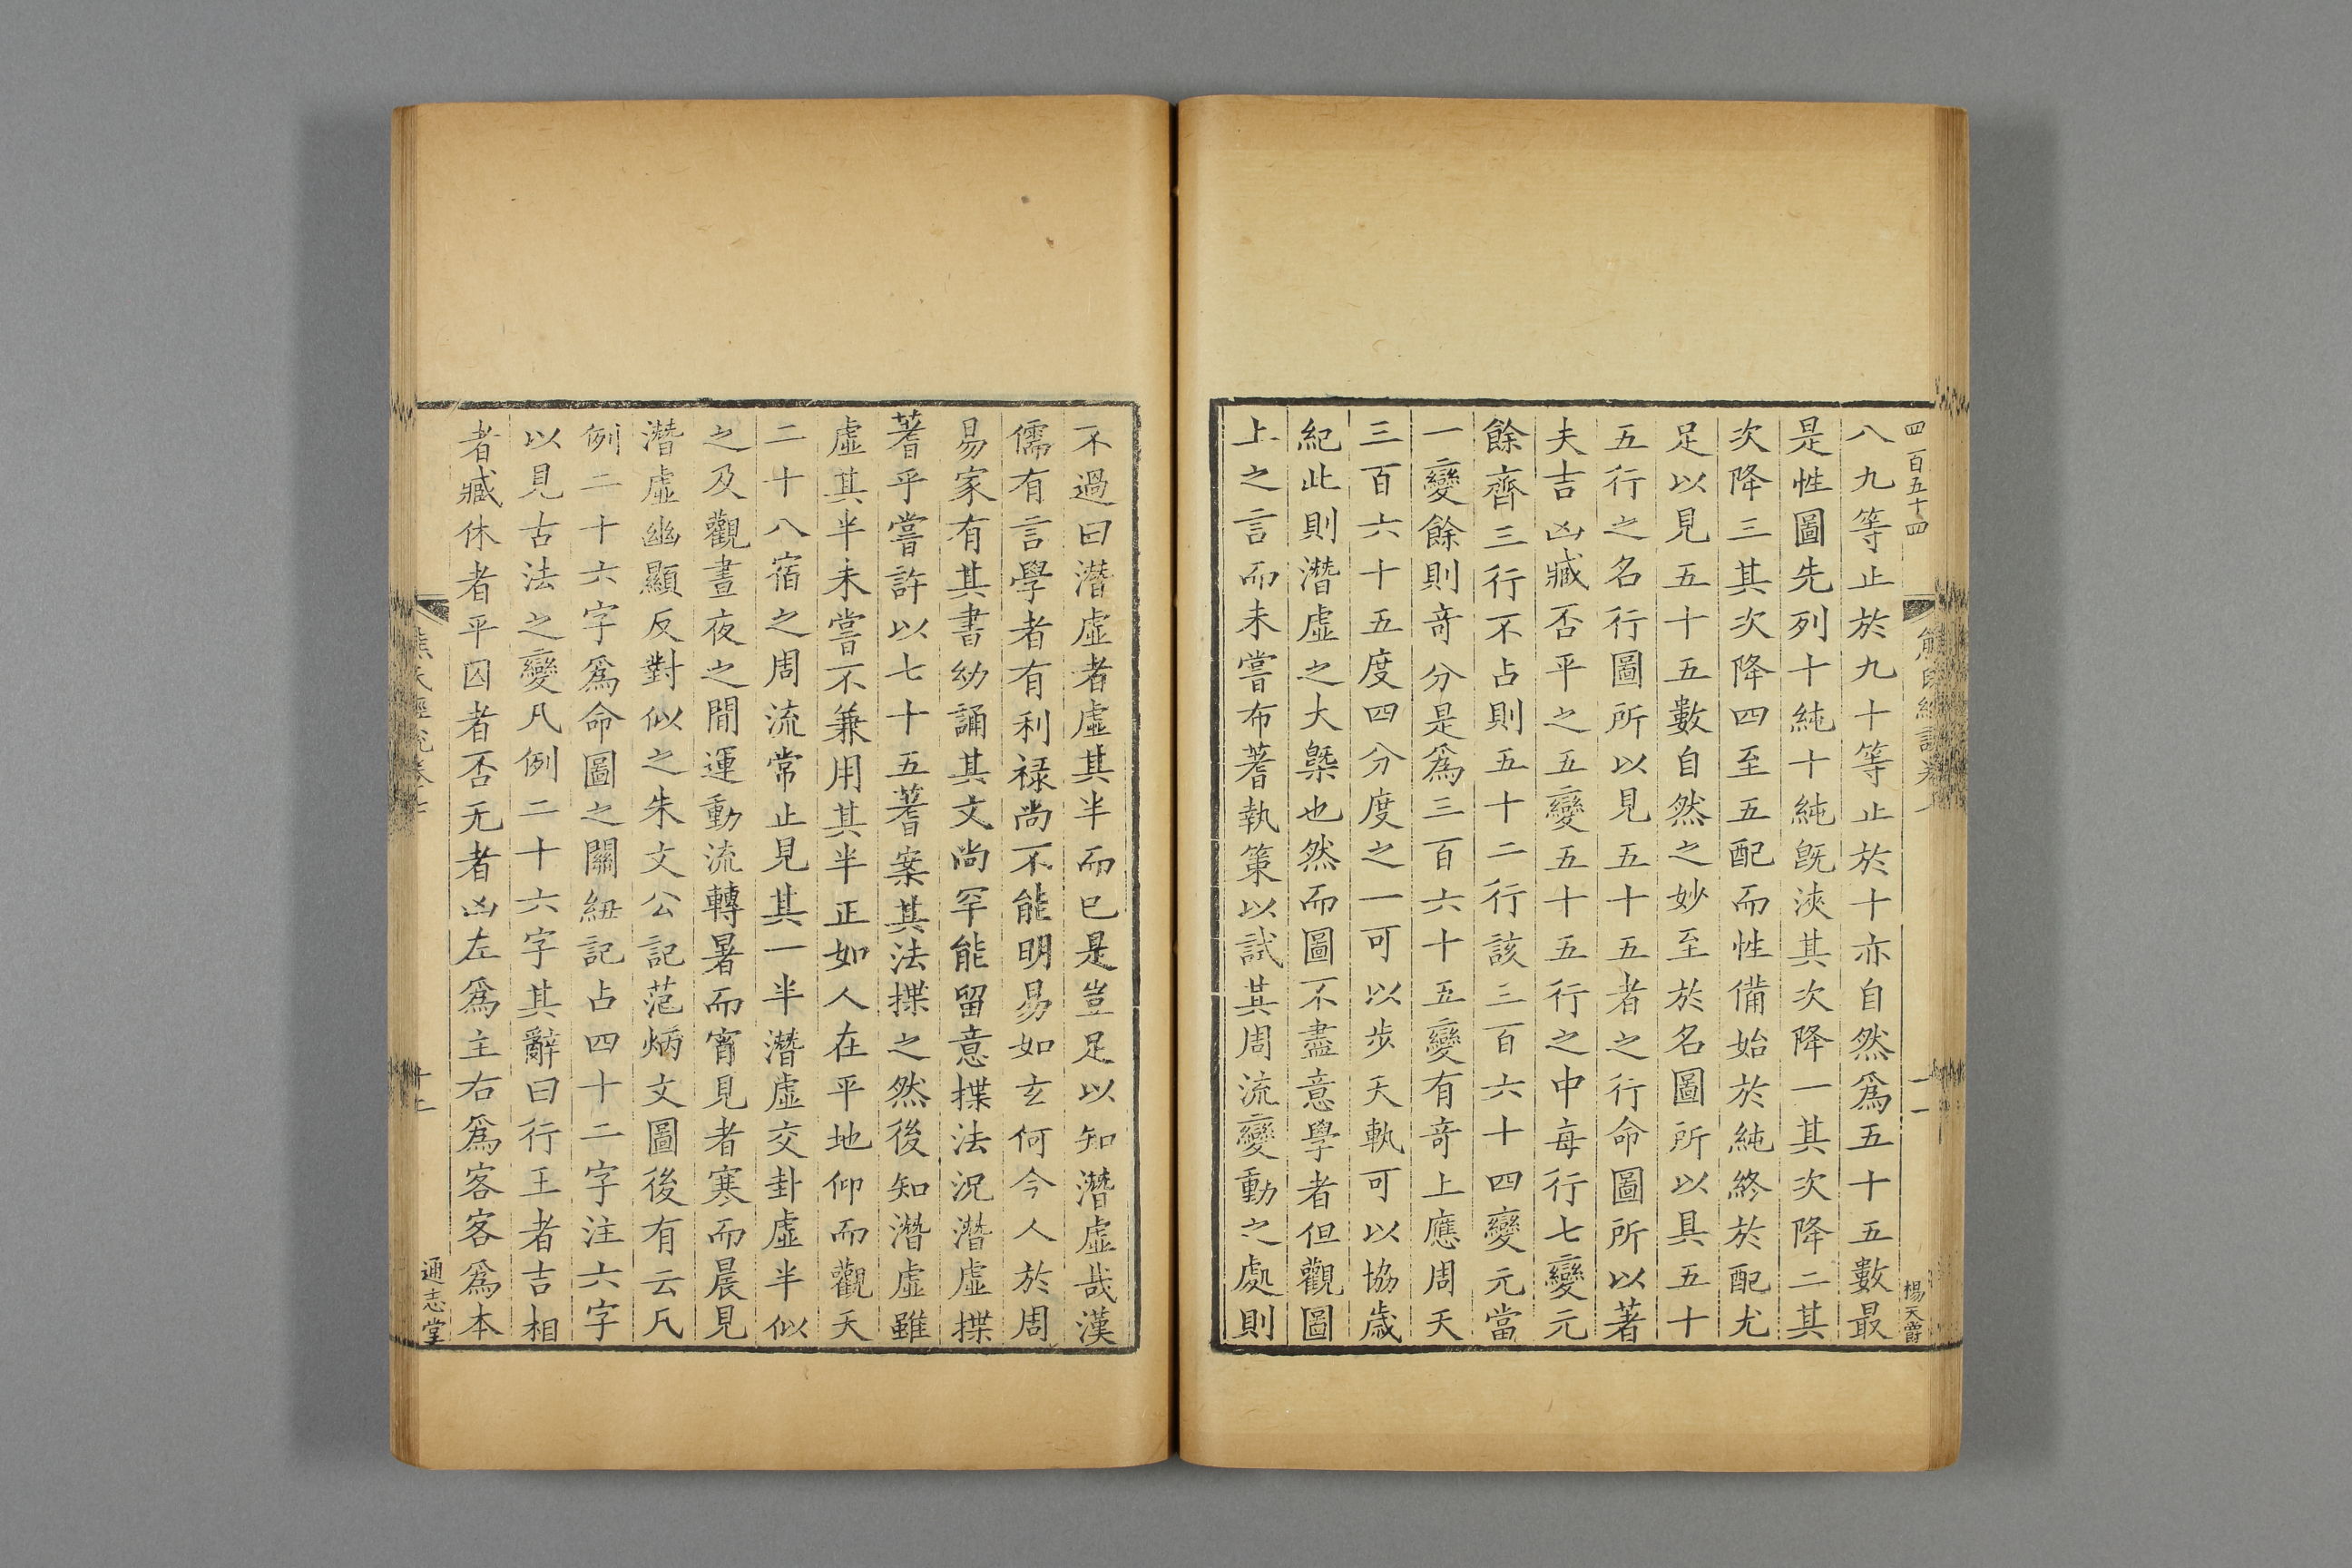 四百五十四
楊天爵
八九等止於九十等止於十亦自然爲五十五數最
是性圖先列十純十純旣浹其次降一其次降二其
次降三其次降四至五配而性備始於純終於配尤
足以見五十五數自然之妙至於名圖所以具五十
五行之名行圖所以見五十五者之行命圖所以著
夫吉凶臧否平之五變五十五行之中每行七變元
餘齊三行不占則五十二行該三百六十四變元當
一變餘則竒分是爲三百六十五變有竒上應周天
三百六十五度四分度之一可以步天軌可以協歳
紀此則潛虛之大槩也然而圖不盡意學者但觀圖
上之言而未嘗布蓍執策以試其周流變動之處則
不過曰潛虛者虛其半而已是豈足以知潛虛哉漢
儒有言學者有利禄尚不能明易如玄何今人於周
易家有其書幼誦其文尚罕能留意揲法況潛虛揲
蓍乎嘗許以七十五蓍案其法揲之然後知潛虛雖
虛其半未嘗不兼用其半正如人在平地仰而觀天
二十八宿之周流常止見其一半潛虛交卦虛半似
之及觀晝夜之間運動流轉暑而宵見者寒而晨見
潛虛幽顯反對似之朱文公記范炳文圖後有云凡
例二十六字爲命圖之關紐記占四十二字注六字
以見古法之變凡例二十六字其辭曰行王者吉相
者臧休者平囚者否无者凶左爲主右爲客客爲本
通志堂